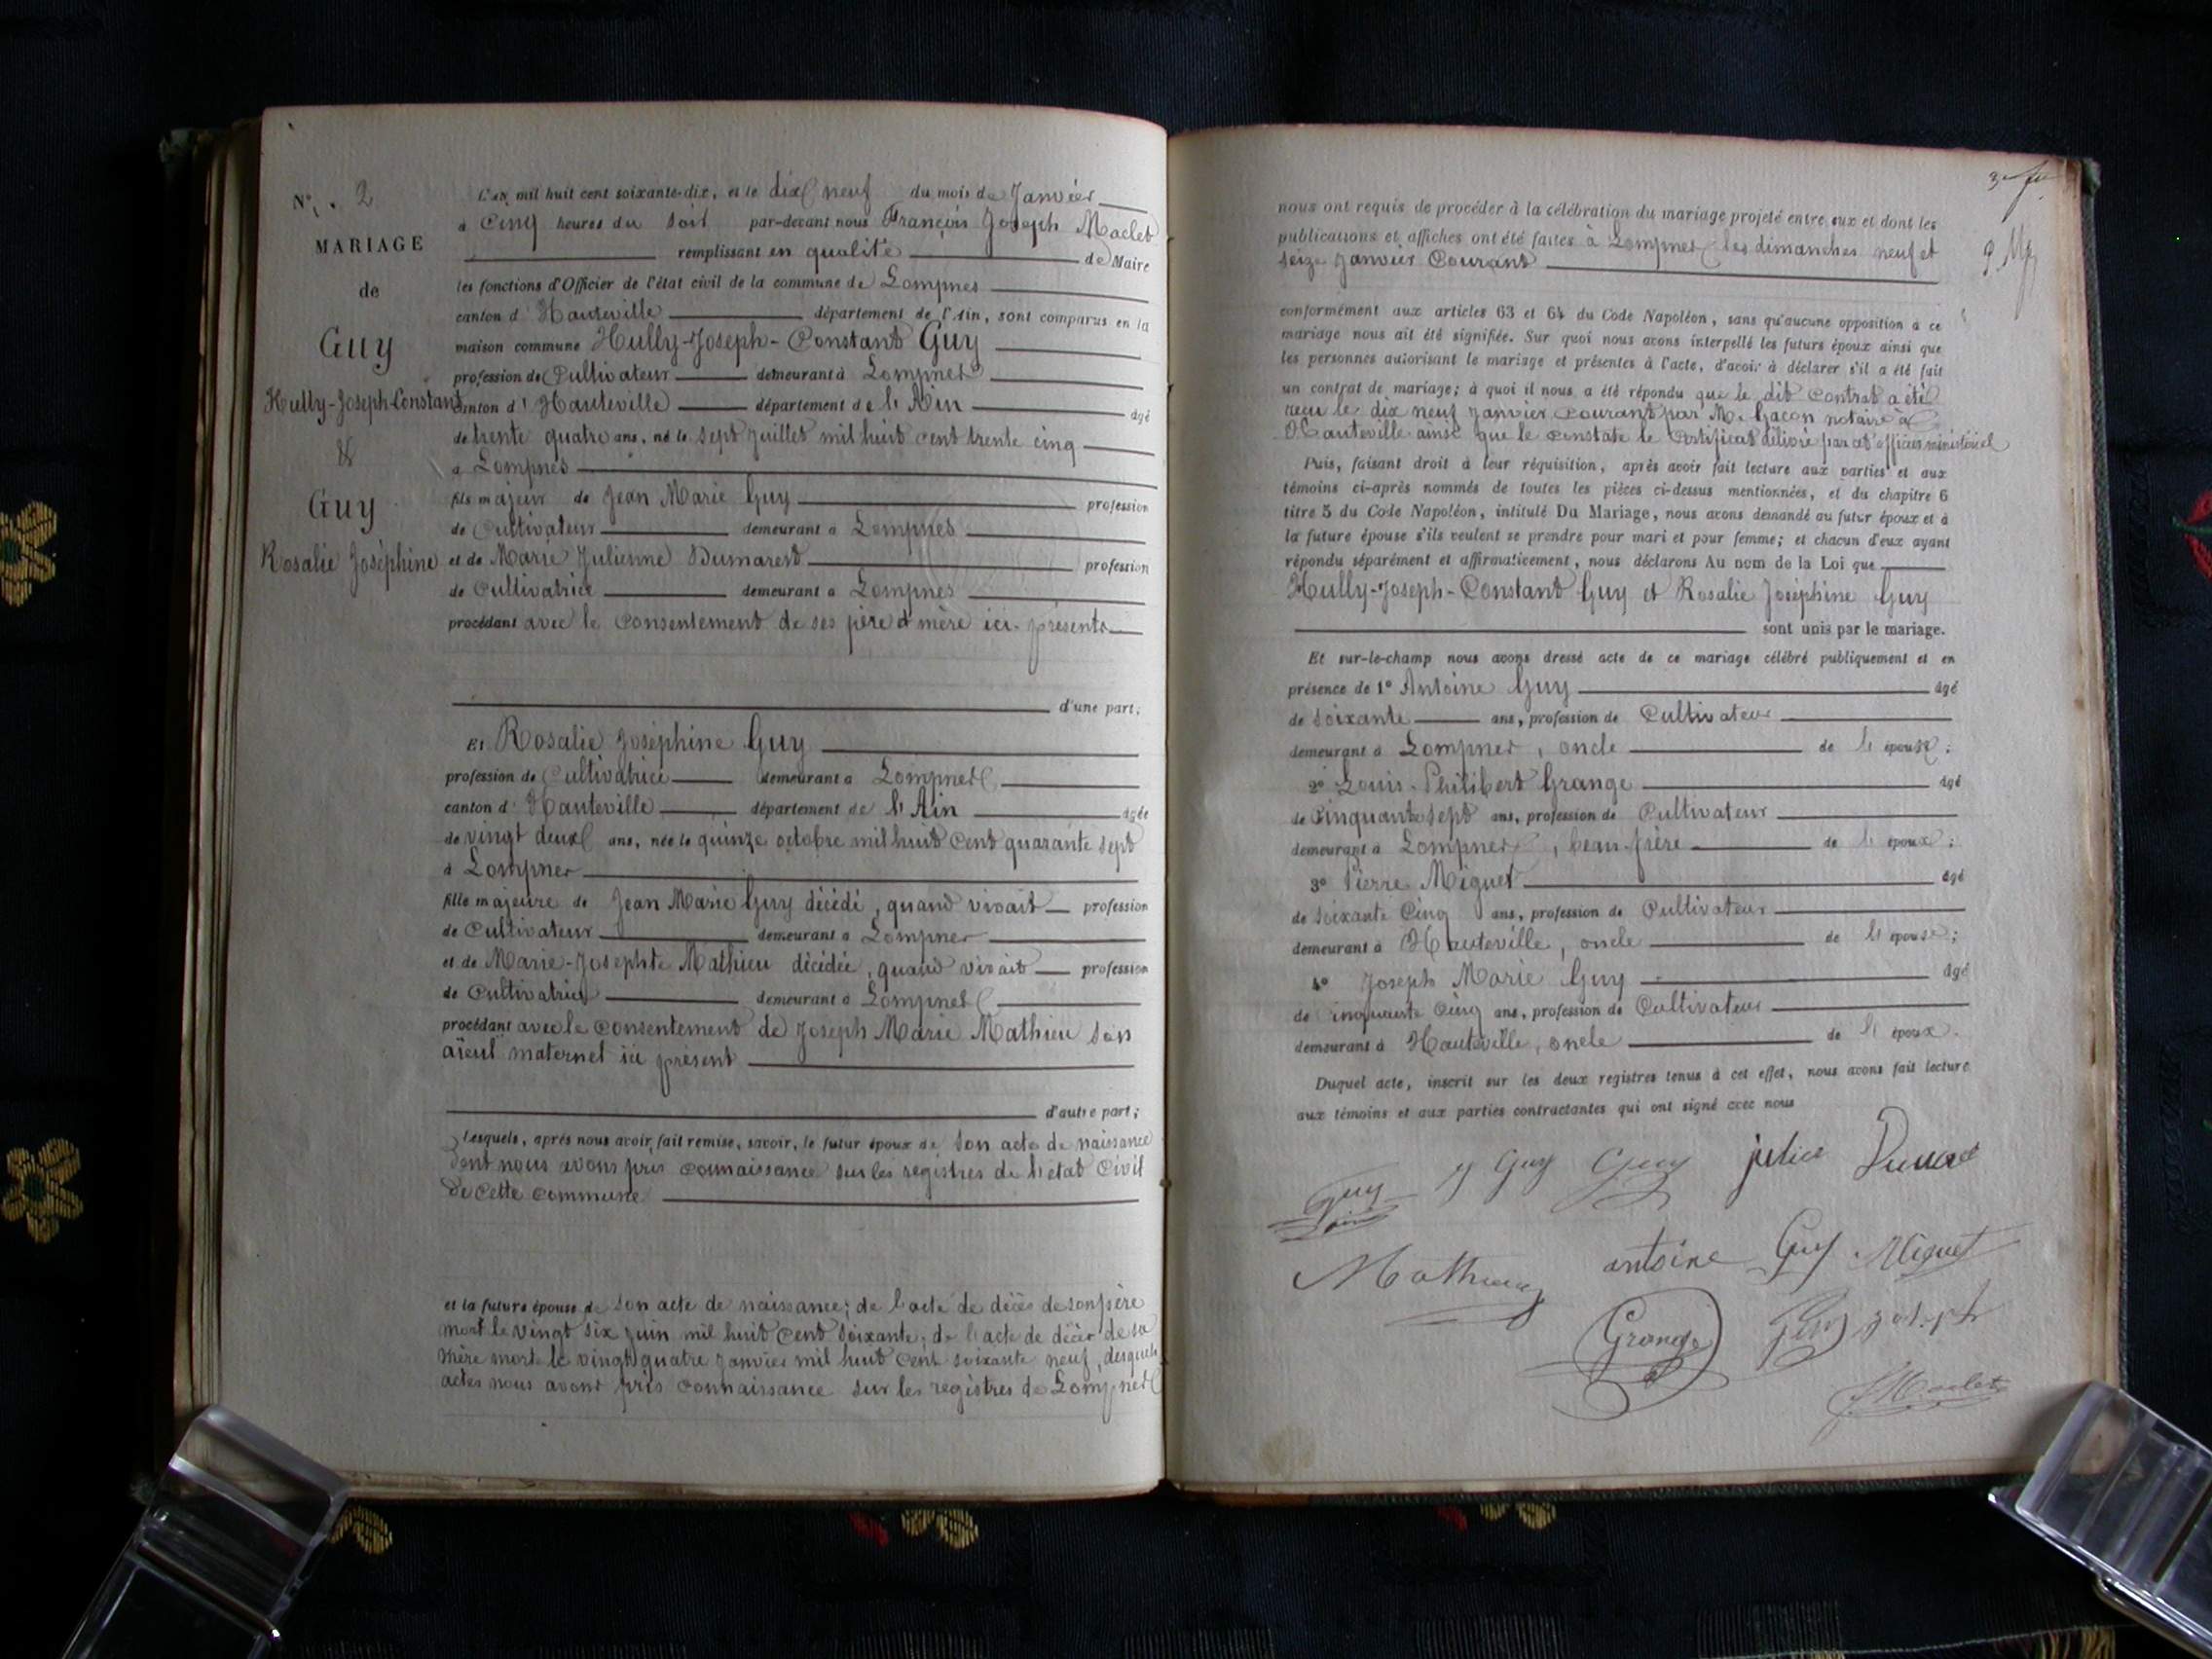 N° 2
MARIAGE
de
Guy
Hully-Joseph-Constant
&
Guy
Rosalie Joséphine
L'an mil huit cent soixante-dix, et le dix neuf du mois de Janvier
à Cinq heures du soir par-devant nous François Joseph Maclet
remplissant en qualité de Maire
les fonctions d'Officier de l'état civil de la commune de Lompnes
canton d' Hauteville département de l'Ain, sont comparus en la
maison commune Hully-Joseph-Constant Guy
profession de Cultivateur demeurant à Lompnes
canton d' Hauteville département de l'Ain âgé
de trente quatre ans, né le sept Juillet mil huit cent trente cinq
à Lompnes
fils majeur de Jean Marie Guy profession
de Cultivateur demeurant à Lompnes
et de Marie Julienne Dumarest profession
de Cultivatrice demeurant à Lompnes
procédant avec le consentement de ses père & mère ici présents
d'une part;
Et Rosalie Joséphine Guy
profession de Cultivatrice demeurant à Lompnes
canton d' Hauteville département de l'Ain âgée
de vingt deux ans, née le quinze octobre mil huit cent quarante sept
à Lompnes
fille majeure de Jean Marie Guy décédé, quand vivait profession
de Cultivateur demeurant à Lompnes
et de Marie-Josephte Mathieu décédée, quand vivait profession
de Cultivatrice demeurant à Lompnes
procédant avec le consentement de Joseph Marie Mathieu son
aïeul maternel ici présent
d'autre part;
Lesquels, après nous avoir fait remise, savoir, le futur époux de son acte de naissance
dont nous avons pris connaissance sur les registres de l'état civil
de cette commune
et la future épouse de son acte de naissance; de l'acte de décès de son père
mort le vingt six juin mil huit cent soixante; de l'acte de décès de sa
mère morte le vingt quatre Janvier mil huit cent soixante neuf, desquels
actes nous avons pris connaissance sur les registres de Lompnes
nous ont requis de procéder à la célébration du mariage projeté entre eux et dont les
publications et affiches ont été faites à Lompnes les dimanches neuf et
seize Janvier Courant
conformément aux articles 63 et 64 du Code Napoléon, sans qu'aucune opposition à ce
mariage nous ait été signifiée. Sur quoi nous avons interpellé les futurs époux ainsi que
les personnes autorisant le mariage et présentes à l'acte, d'avoir à déclarer s'il a été fait
un contrat de mariage; à quoi il nous a été répondu que le dit Contrat a été
reçu le dix neuf Janvier Courant par M. Gacon notaire à
Hauteville ainsi que le constate le certificat délivré par cet officier ministériel
Puis, faisant droit à leur réquisition, après avoir fait lecture aux parties et aux
témoins ci-après nommés de toutes les pièces ci-dessus mentionnées, et du chapitre 6
titre 5 du Code Napoléon, intitulé Du Mariage, nous avons demandé au futur époux et à
la future épouse s'ils veulent se prendre pour mari et pour femme; et chacun d'eux ayant
répondu séparément et affirmativement, nous déclarons Au nom de la Loi que
Hully-Joseph-Constant Guy et Rosalie Joséphine Guy
sont unis par le mariage.
Et sur-le-champ nous avons dressé acte de ce mariage célébré publiquement et en
présence de 1° Antoine Guy âgé
de soixante ans, profession de Cultivateur
demeurant à Lompnes, oncle de l'épouse;
2° Louis-Philibert Grange âgé
de Cinquante sept ans, profession de Cultivateur
demeurant à Lompnes, beau-frère de l'époux;
3° Pierre Miguet âgé
de soixante Cinq ans, profession de Cultivateur
demeurant à Hauteville, oncle de l'épouse;
4° Joseph Marie Guy âgé
de cinquante Cinq ans, profession de Cultivateur
demeurant à Hauteville, oncle de l'époux.
Duquel acte, inscrit sur les deux registres tenus à cet effet, nous avons fait lecture
aux témoins et aux parties contractantes qui ont signé avec nous
Guy Guy Guy julie
Mathieu antoine Guy Miguet
Grange Guy joseph
Maclet